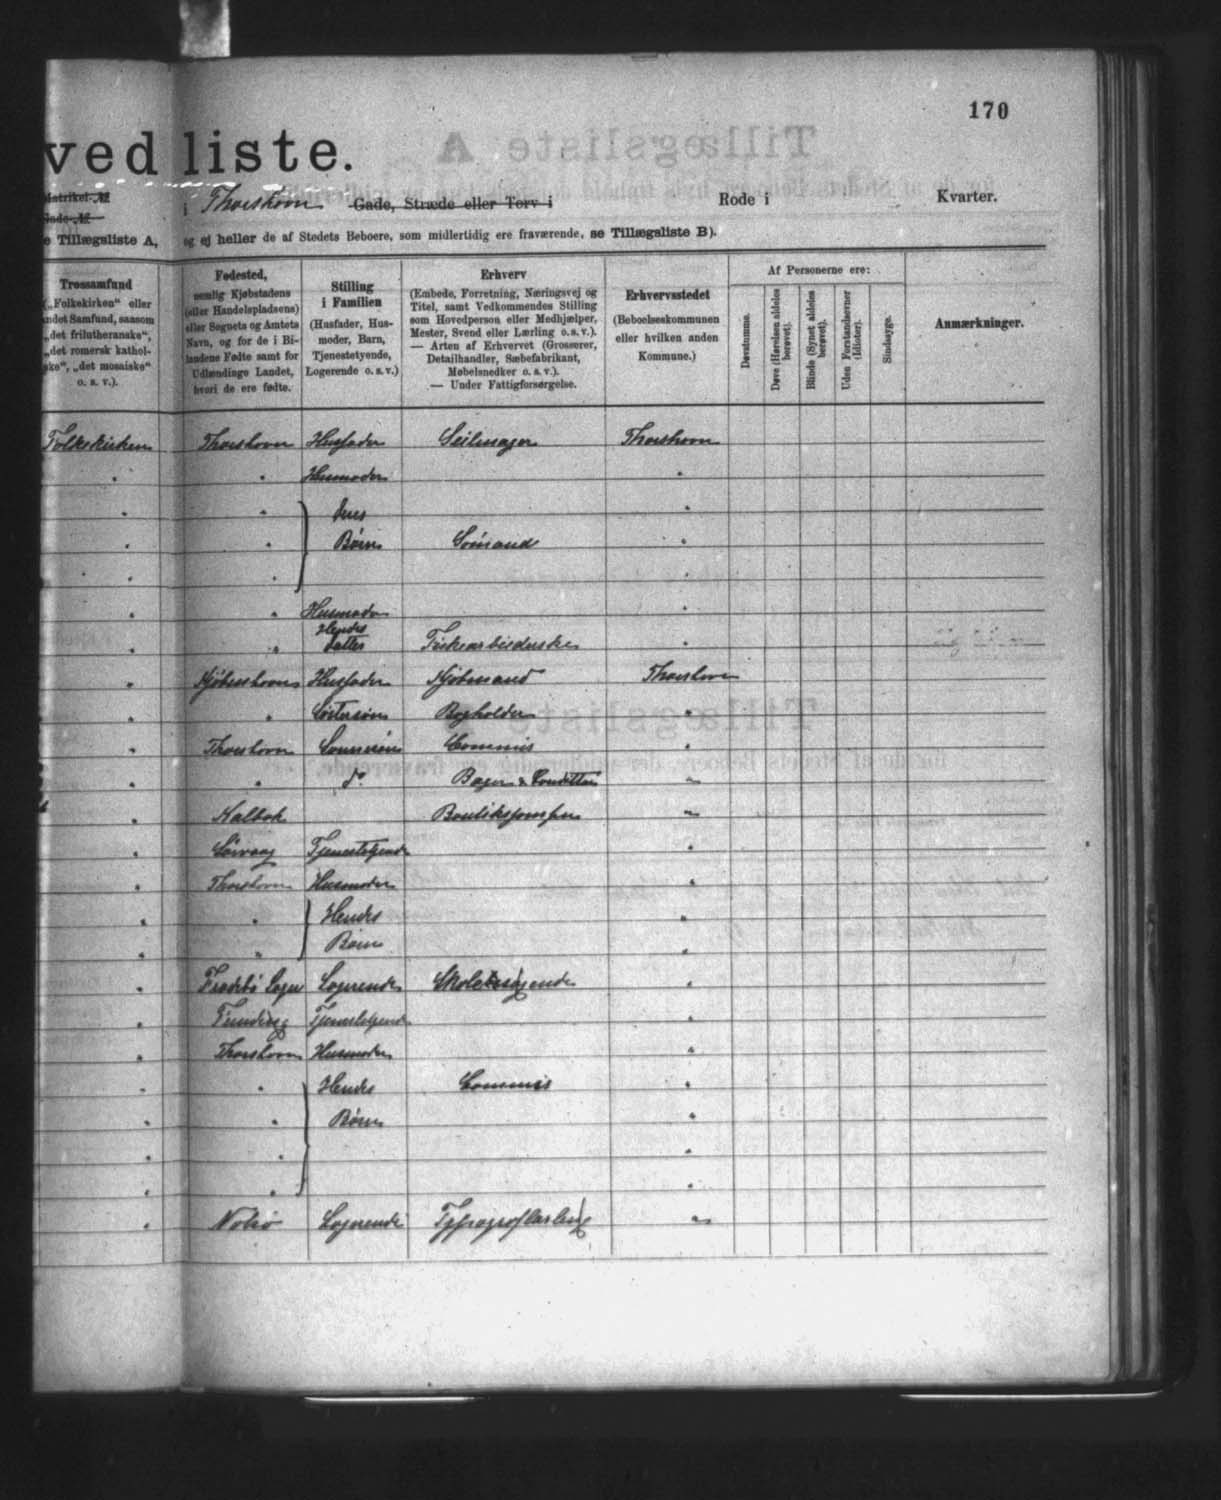 170
ved liste.
Matrikel-№
Gade-№
i Thorshavn Gade, Stræde eller Torv i Rode i Kvarter.
e Tillægsliste A, og ej heller de af Stedets Beboere, som midlertidig ere fraværende, se Tillægsliste B).
Trossamfund
(„Folkekirken" eller
andet Samfund, saasom
„det frilutheranske",
„det romersk kathol-
ske", „det mosaiske"
o. s. v.).
Fødested,
nemlig Kjøbstadens
(eller Handelspladsens)
eller Sognets og Amtets
Navn, og for de i Bi-
landene Fødte samt for
Udlændinge Landet,
hvori de ere fødte.
Stilling
i Familien
(Husfader, Hus-
moder, Barn,
Tjenestetyende,
Logerende o.s.v.)
Erhverv
(Embede, Forretning, Næringsvej og
Titel, samt Vedkommendes Stilling
som Hovedperson eller Medhjælper,
Mester, Svend eller Lærling o.s.v.).
— Arten af Erhvervet (Grosserer,
Detailhandler, Sæbefabrikant,
Møbelsnedker o. s. v.).
— Under Fattigforsørgelse.
Erhvervsstedet
(Beboelseskommunen
eller hvilken anden
Kommune.)
Af Personerne ere:
Døvstumme.
Døve (Hørelsen aldeles
berøvet).
Blinde (Synet aldeles
berøvet).
Uden Forstandsevner
(Idioter).
Sindssyge.
Anmærkninger.
Folkekirken Thorshavn Husfader Seilmager Thorshavn
" " Husmoder "
" " deres "
" " Børn Sömand "
" "
" " Husmoder "
" " Hendes
datter Fiskearbeiderske "
" Kjöbenhavn Husfader Kjöbmand Thorshavn
" " Södersön Bogholder "
" Thorshavn Sönnesön Commis "
" " do Bager & Conditter "
" Kalbak Boutiksjomfru "
" Sörvaag Tjenestetyende "
" Thorshavn Husmoder "
" " Hendes "
" " Børn "
" Logerende Skolesögende "
" Tjenestetyende "
" Thorshavn Husmoder "
" " Hendes Commis "
" " Børn "
" " "
" " "
" Nolsö Logerende Typograflærling "